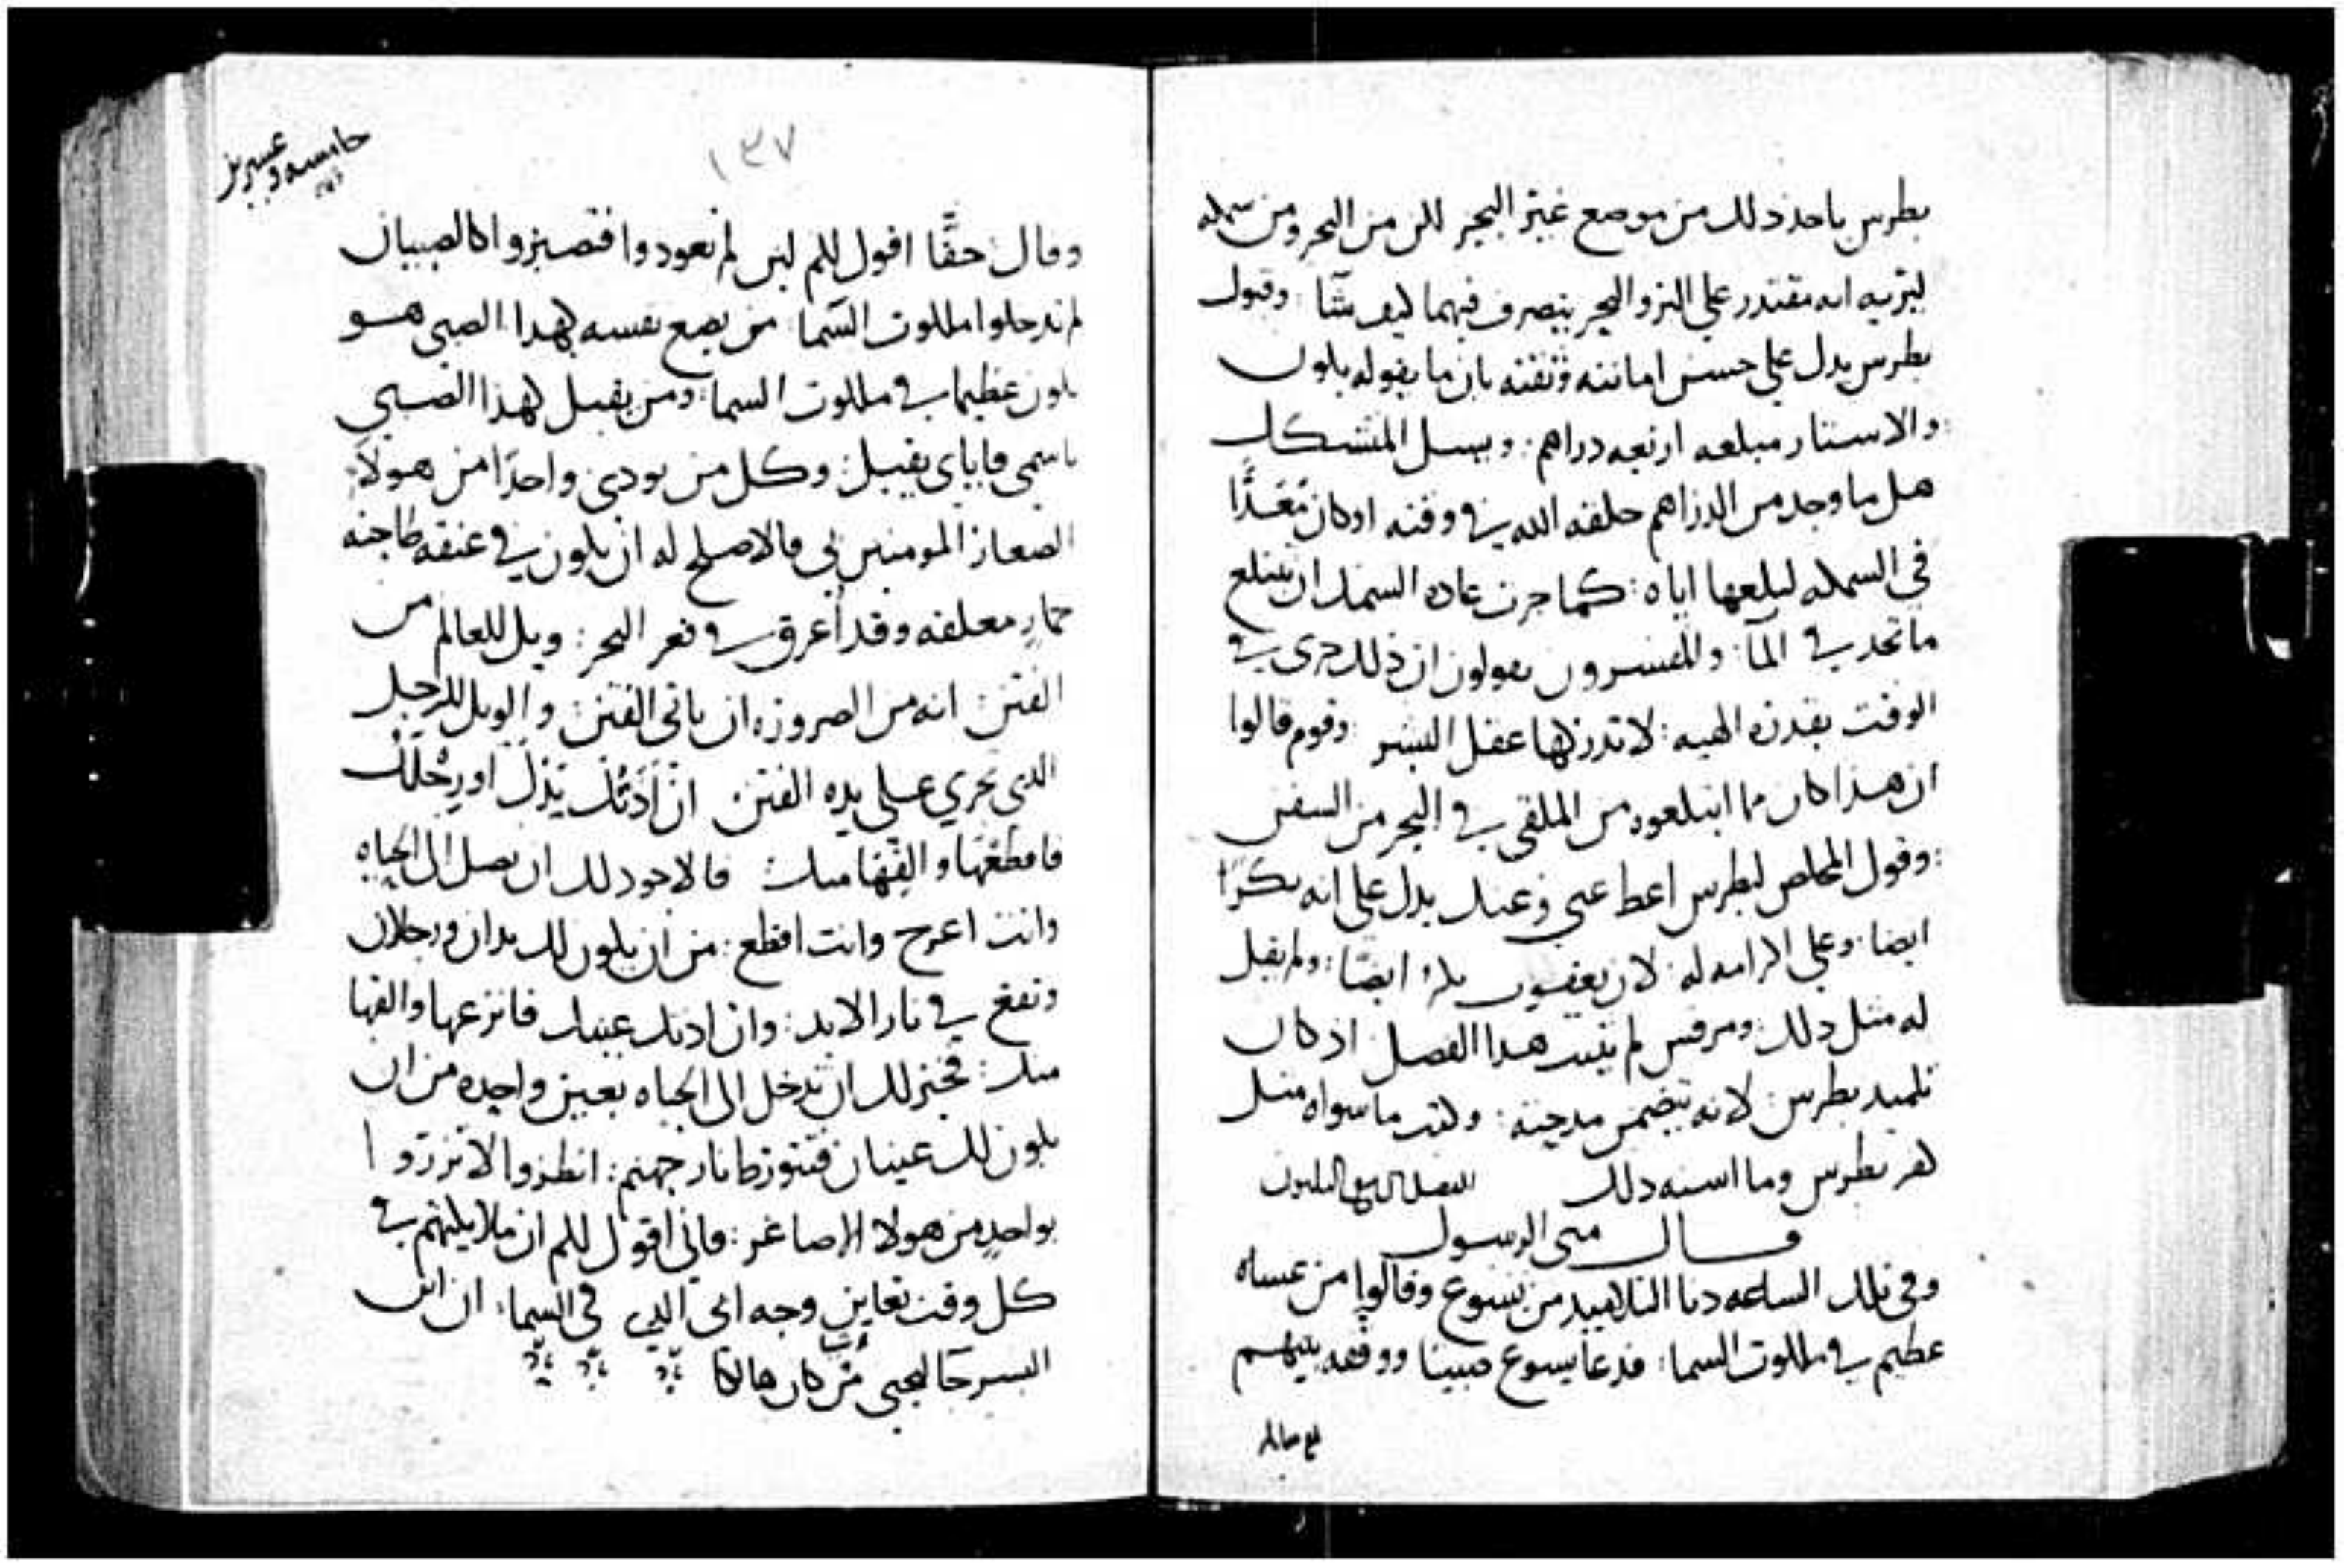 بطرس ياخذ ذلك من موضع غير البحر لكن من البحر ومن سمكه
ليريه انه مقتدر علي البر والبحر يتصرف فيهما كيف شآ : وقول
بطرس يدل علي حسن امانته وثقته بان ما يقوله يكون
: والاستار مبلغه اربعه دراهم : ويسل المتشكك
هل ما وجد من الدراهم خلقه الله في وقته او كان مُعَدًّا
في السمكه لبلعها اياه : كما جرت عاده السمك ان يبتلع
ما تجد في المآ : والمفسرون يقولون ان ذلك جرى في
الوقت بقدره الهيه : لا تدركها عقل البشر : وقوم قالوا
ان هذا كان مما ابتلعوه من الملقى في البحر من السفن
: وقول المخلص لبطرس اعط عني وعنك يدل على انه بكرًا
ايضا : وعلى اكرامه له : لان يعقوب بكر ايضًا : ولم يقبل
له مثل ذلك : ومرقس لم يثبت هذا الفصل اذ كان
تلميد بطرس : لانه يتضمن مدحته : وكتب ما سواه مثل
كفر بطرس وما اشبه ذلك الفصل
قال متى الرسول
وفي تلك الساعه دنا التلاميد من يسوع وقالوا من عساه
عظيم في ملكوت السما : فدعا يسوع صبيًا ووقفه بينهم
١٣٧
خامسه وعشرين
وقال : حقًّا اقول لكم لين لم تعودوا فتصيروا كالصبيان
لم تدخلوا ملكوت السّما : من يضع نفسه كهدا الصبى هو
يكون عظيمًا في ملكوت السما : ومن يقبل كهذا الصبي
باسمى فاياي يقبل : وكل من يودى واحدًا من هولآء
الصغار المومنين بى فالاصلح له ان يكون في عنقه طاحنه
حمارٍ معلقه وقد أُغرق في قعر البحر : ويل للعالم من
الفتن : انه من الضروره ان ياتى الفتن : والويل للرجل
الدى تجري على يده الفتن : ان أَذَتْكَ يَدُكَ او رِجْلَكَ
فاقطعها والقِها منك : فالاجود لك ان تصل الى الحياه
وانت اعرج وانت اقطع : من ان يكون لك يدان ورجلان
وتقع في نار الابد : وان ادتك عينك فانزعها والقها
منك : فخير لك ان تدخل الى الحياه بعين واحده من ان
يكون لك عينان فتتورط نار جهنم : انظروا لا تزروا
بواحدٍ من هولا الاصاغر : فاني اقول لكم ان ملايكتهم في
كل وقت تعاين وجه ابى الدي في السما : ان ابن
البشر جآ ليحيى من كان هالكًا